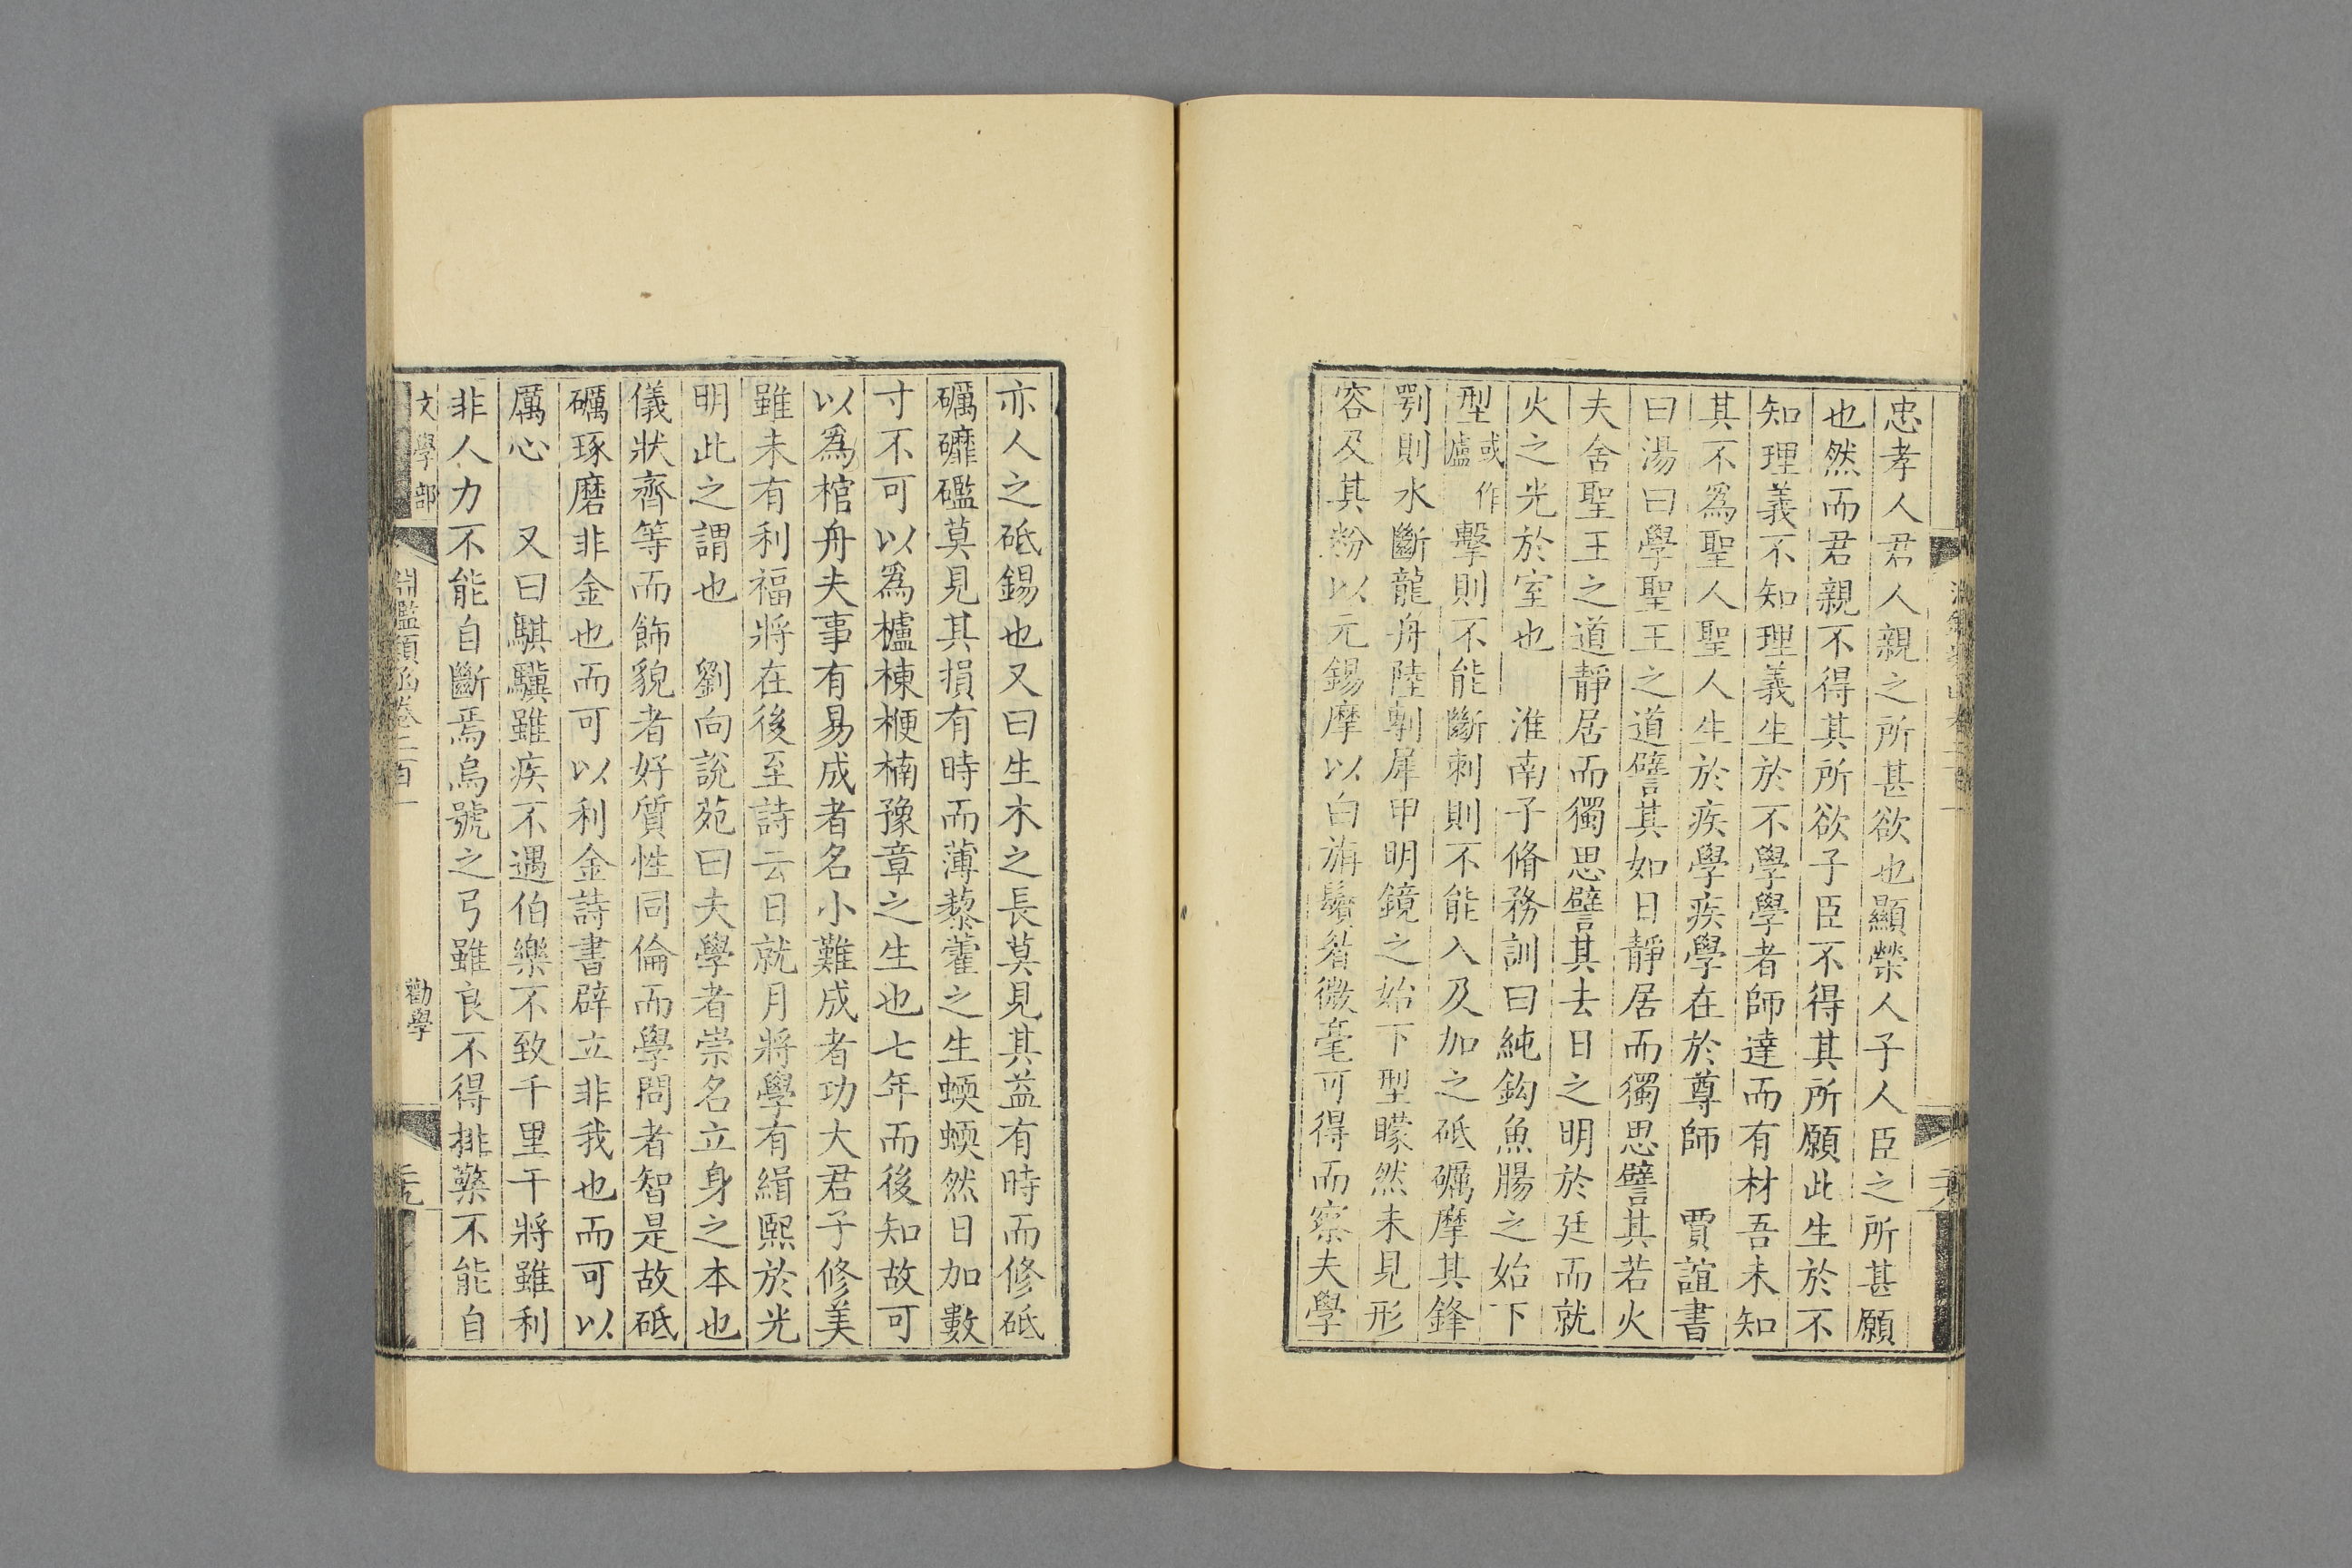 忠孝人君人親之所甚欲也顯榮人子人臣之所甚願
也然而君親不得其所欲子臣不得其所願此生於不
知理義不知理義生於不學學者師達而有材吾未知
其不爲聖人聖人生於疾學疾學在於尊師　賈誼書
曰湯曰學聖王之道譬其如日靜居而獨思譬其若火
夫舍聖王之道靜居而獨思譬其去日之明於廷而就
火之光於室也　淮南子脩務訓曰純鈎魚腸之始下
型或作盧擊則不能斷刺則不能入及加之砥礪摩其鋒
鄂則水斷龍舟陸剸犀甲明鏡之始下型矇然未見形
容及其粉以元錫摩以白旃鬢眉微毫可得而察夫學
亦人之砥錫也又曰生木之長莫見其益有時而修砥
礪礲磑莫見其損有時而薄藜藿之生蝡蝡然日加數
寸不可以爲櫨棟楩楠豫章之生也七年而後知故可
以爲棺舟夫事有易成者名小難成者功大君子修美
雖未有利福將在後至詩云日就月將學有緝熙於光
明此之謂也　劉向說苑曰夫學者崇名立身之本也
儀狀齊等而飾貌者好質性同倫而學問者智是故砥
礪琢磨非金也而可以利金詩書辟立非我也而可以
厲心　又曰騏驥雖疾不遇伯樂不致千里干將雖利
非人力不能自斷焉烏號之弓雖良不得排檠不能自
文學部　淵鑑類函卷二百一　勸學　二十九